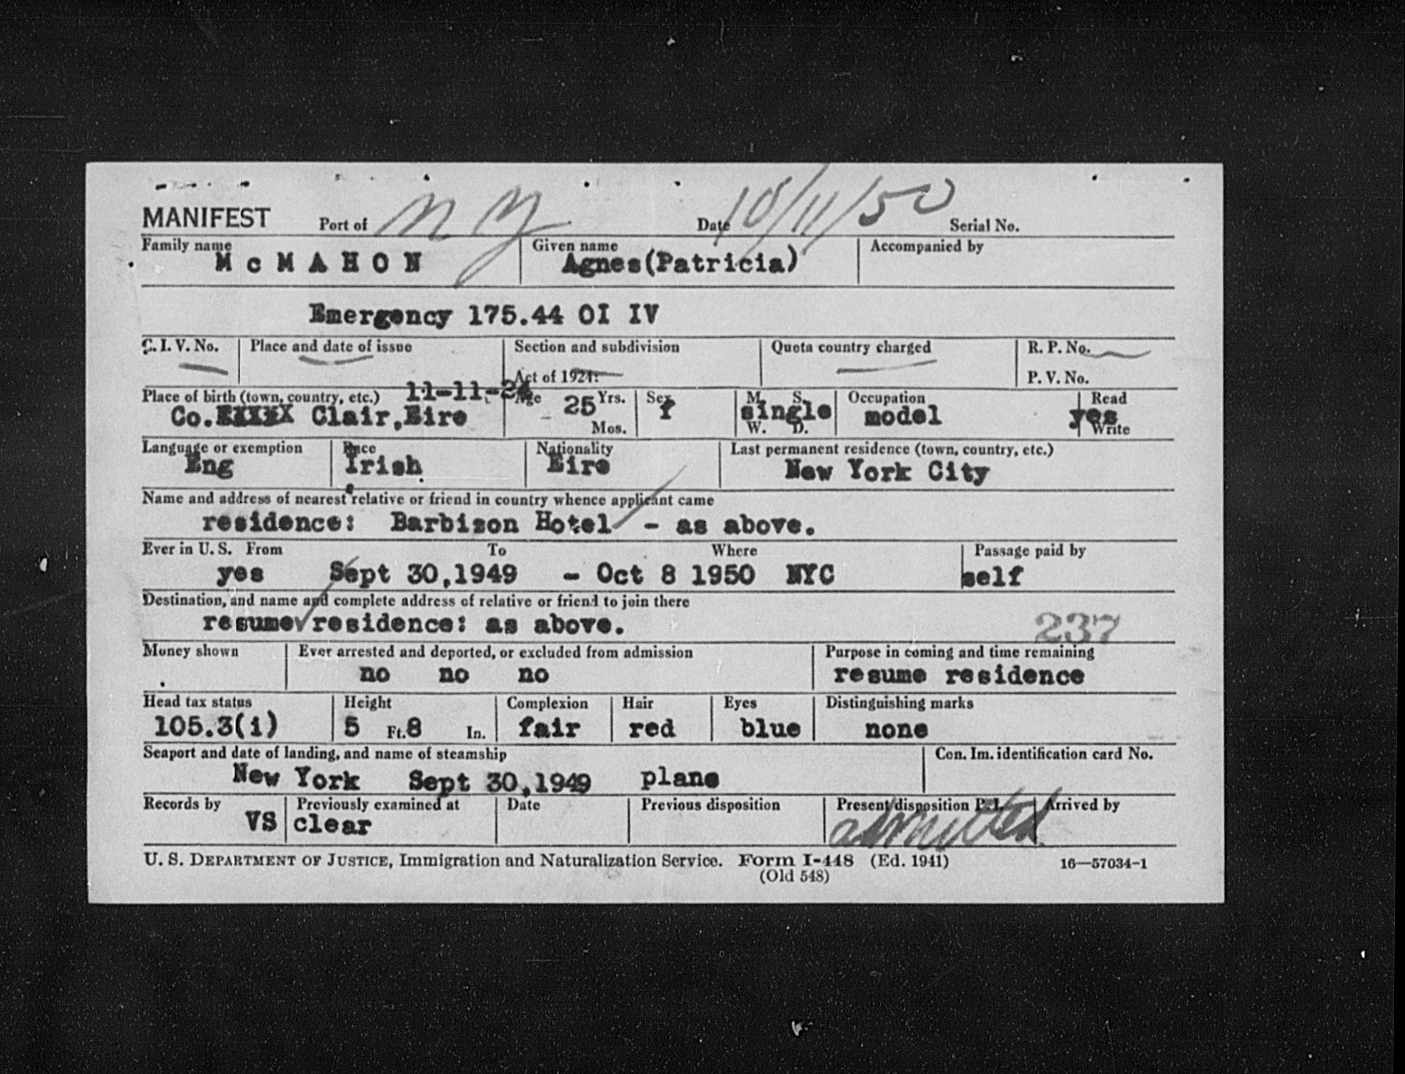 MANIFEST Port of N Y Date 10/11/50 Serial No.
Family name Given name Accompanied by
McMAHON Agnes(Patricia)
Emergency 175.44 OI IV
C. I. V. No. Place and date of issue Section and subdivision Quota country charged R. P. No.
Act of 1924: P. V. No.
Place of birth (town, country, etc.) 11-11-24 Age 25 Yrs. Sex M. S. Occupation Read
Co. Clair,Eire Mos. f single W. D. model yes Write
Language or exemption Race Nationality Last permanent residence (town, country, etc.)
Eng Irish Eire New York City
Name and address of nearest relative or friend in country whence applicant came
residence: Barbizon Hotel - as above.
Ever in U. S. From To Where Passage paid by
yes Sept 30,1949 - Oct 8 1950 NYC self
Destination, and name and complete address of relative or friend to join there
resume residence: as above. 237
Money shown Ever arrested and deported, or excluded from admission Purpose in coming and time remaining
no no no resume residence
Head tax status Height Complexion Hair Eyes Distinguishing marks
105.3(1) 5 Ft. 8 In. fair red blue none
Seaport and date of landing, and name of steamship Con. Im. identification card No.
New York Sept 30,1949 plane
Records by Previously examined at Date Previous disposition Present disposition P.I. Arrived by
VS clear admitted
U. S. DEPARTMENT OF JUSTICE, Immigration and Naturalization Service. Form I-448 (Ed. 1941) 16—57034-1
(Old 548)